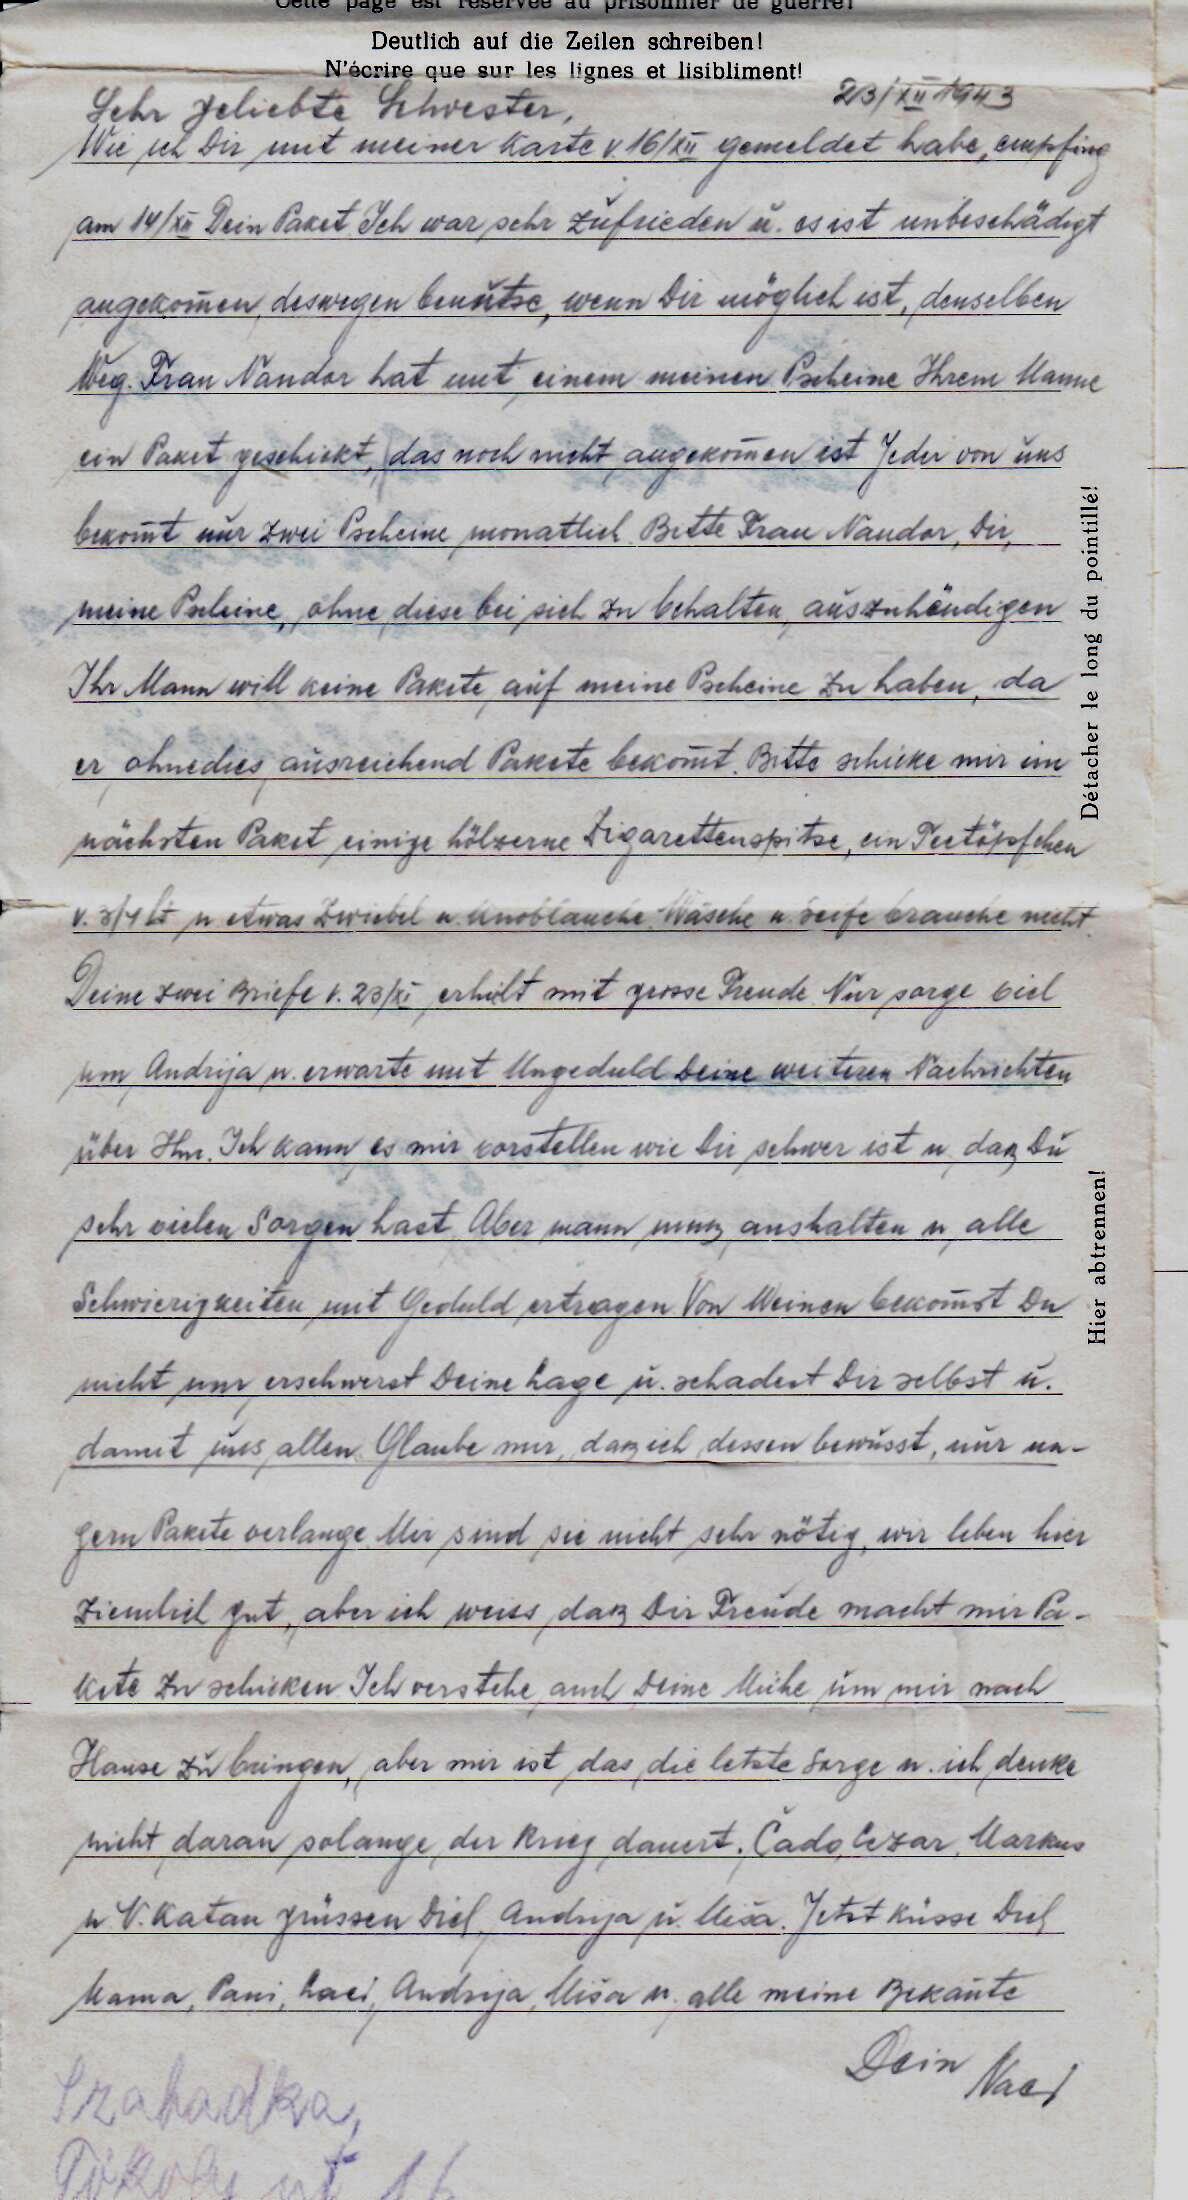 Cette page est réservée au prisonnier de guerre!
Deutlich auf die Zeilen schreiben!
N'écrire que sur les lignes et lisibliment!
23/XII 1943
Sehr geliebte Schwester,
Wie ich Dir mit meiner Karte v. 16/XII gemeldet habe, empfing
am 14/XII Dein Paket. Ich war sehr zufrieden u. es ist unbeschädigt
angekom̄en, deswegen benutse, wenn Dir möglich ist, denselben
Weg. Frau Nandor hat mit einem meinen Pscheine Ihrem Manne
ein Paket geschickt, das noch nicht angekom̄en ist. Jeder von uns
bekom̄t nur zwei Pscheine monatlich. Bitte Frau Nandor, Dir,
meine Pscheine, ohne diese bei sich zu behalten, auszuhändigen
Ihr Mann will keine Pakete auf meine Pscheine zu haben, da
er ohnedies ausreichend Pakete bekom̄t. Bitte schicke mir im
nächsten Paket einige hölzerne Zigarettenspitse, ein Teetöpfchen
v. 3/4 lt u etwas Zwiebel u. Knoblauche. Wäsche u. Seife brauche nicht.
Deine zwei Briefe v. 23/XI erhielt mit grosse Freude. Nur sorge viel
um Andrija u. erwarte mit Ungeduld Deine weiteren Nachrichten
über Ihm. Ich kann es mir vorstellen wie Dir schwer ist u. daß Du
sehr vielen Sorgen hast. Aber mann muß aushalten u. alle
Schwierigkeiten mit Geduld ertragen. Von Weinen bekom̄st Du
nicht nur erschwerst Deine Lage u. schadest Dir selbst u.
damit uns allen. Glaube mir, daß ich dessen bewusst, nur un-
gern Pakete verlange. Mir sind sie nicht sehr nötig, wir leben hier
ziemlich gut, aber ich weiss daß Dir Freude macht mir Pa-
kete zu schicken. Ich verstehe auch Deine Mühe um mir nach
Hause zu bringen, aber mir ist das die letzte Sorge u. ich denke
nicht daran solange der Krieg dauert. Čado, Cezar, Markus
u V. Katan grüssen Dich, Andrija u. Miša. Jetzt küsse Dich
Mama, Pani, Laci, Andrija, Miša u. alle meine Bekan̄te
Dein Naci
Szabadka,
Tököly ut 16
Détacher le long du pointillé!
Hier abtrennen!